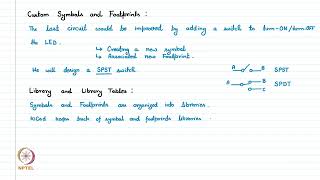 Custom Symbols and Footprints :
The last circuit would be improved by adding a switch to turn-ON/turn-OFF
the LED.
↳ Creating a new symbol
↳ Associated new Footprint.
We will design a SPST switch
A B SPST
A B C SPDT
Library and Library Tables :
Symbols and Footprints are organized into libraries.
KiCad keeps track of symbol and footprints libraries.
NPTEL